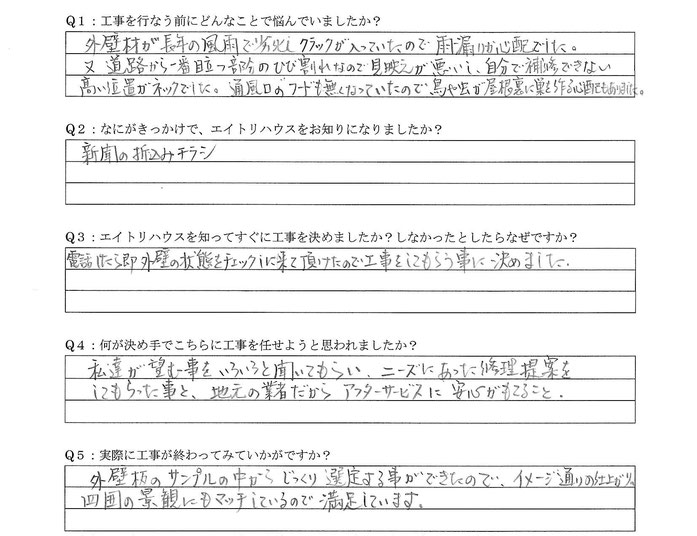 Q1：工事を行なう前にどんなことで悩んでいましたか？
外壁材が長年の風雨で劣化しクラックが入っていたので雨漏りが心配でした。
又道路から一番目立つ部分のひび割れなので見映えが悪いし、自分で補修できない
高い位置がネックでした。通風口のフードも無くなっていたので鳥や虫が屋根裏に巣を作る心配もありました。
Q2：なにがきっかけで、エイトリハウスをお知りになりましたか？
新聞の折込みチラシ
Q3：エイトリハウスを知ってすぐに工事を決めましたか？しなかったとしたらなぜですか？
電話したら即外壁の状態をチェックしに来て頂けたので工事をしてもらう事に決めました.
Q4：何が決め手でこちらに工事を任せようと思われましたか？
私達が望む事をいろいろと聞いてもらい、ニーズにあった修理提案を
してもらった事と、地元の業者だからアフターサービスに安心がもてること.
Q5：実際に工事が終わってみていかがですか？
外壁板のサンプルの中からじっくり選定する事ができたので、イメージ通りの仕上がり。
四囲の景観にもマッチしているので満足しています。